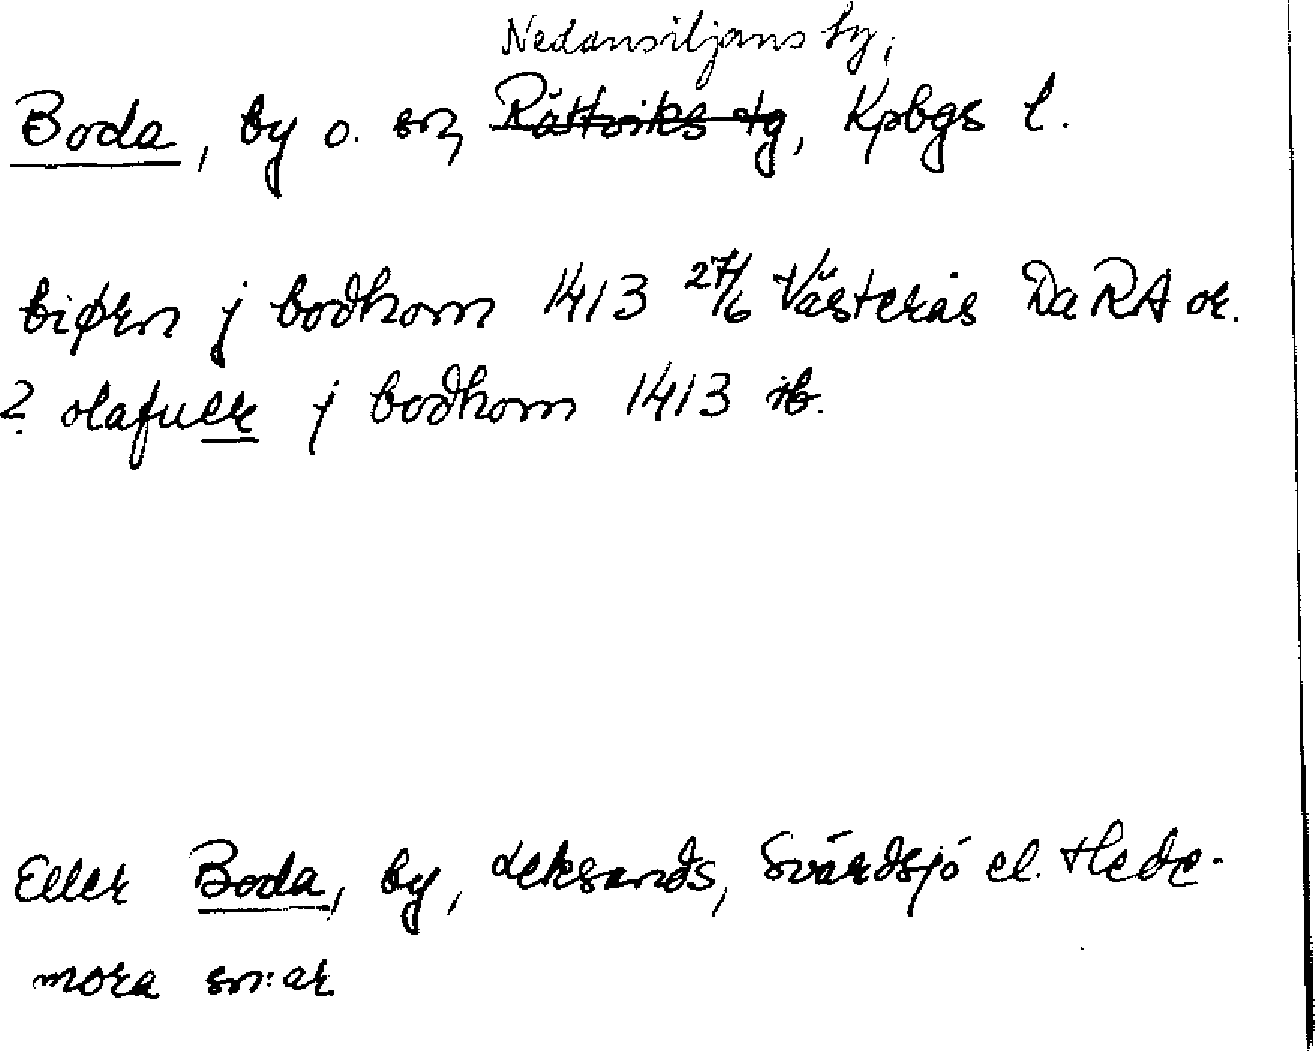 Nedansiljans hg,
Boda, by o. sn, Rättviks tg, Kpbgs l.
biørn j bodhom 1413 27/6 Västerås Da RA or.
? olafuer j bodhom 1413 ib.
Eller Boda, by, Leksands, Svärdsjö el. Hede-
mora sn:ar